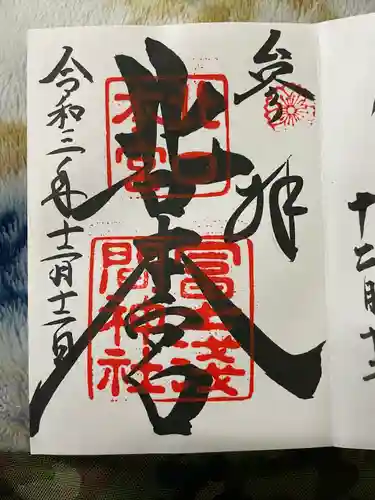 十二月十二
参拝
北口本宮
北口
本宮
冨士浅
間神社
令和三年十二月十二日